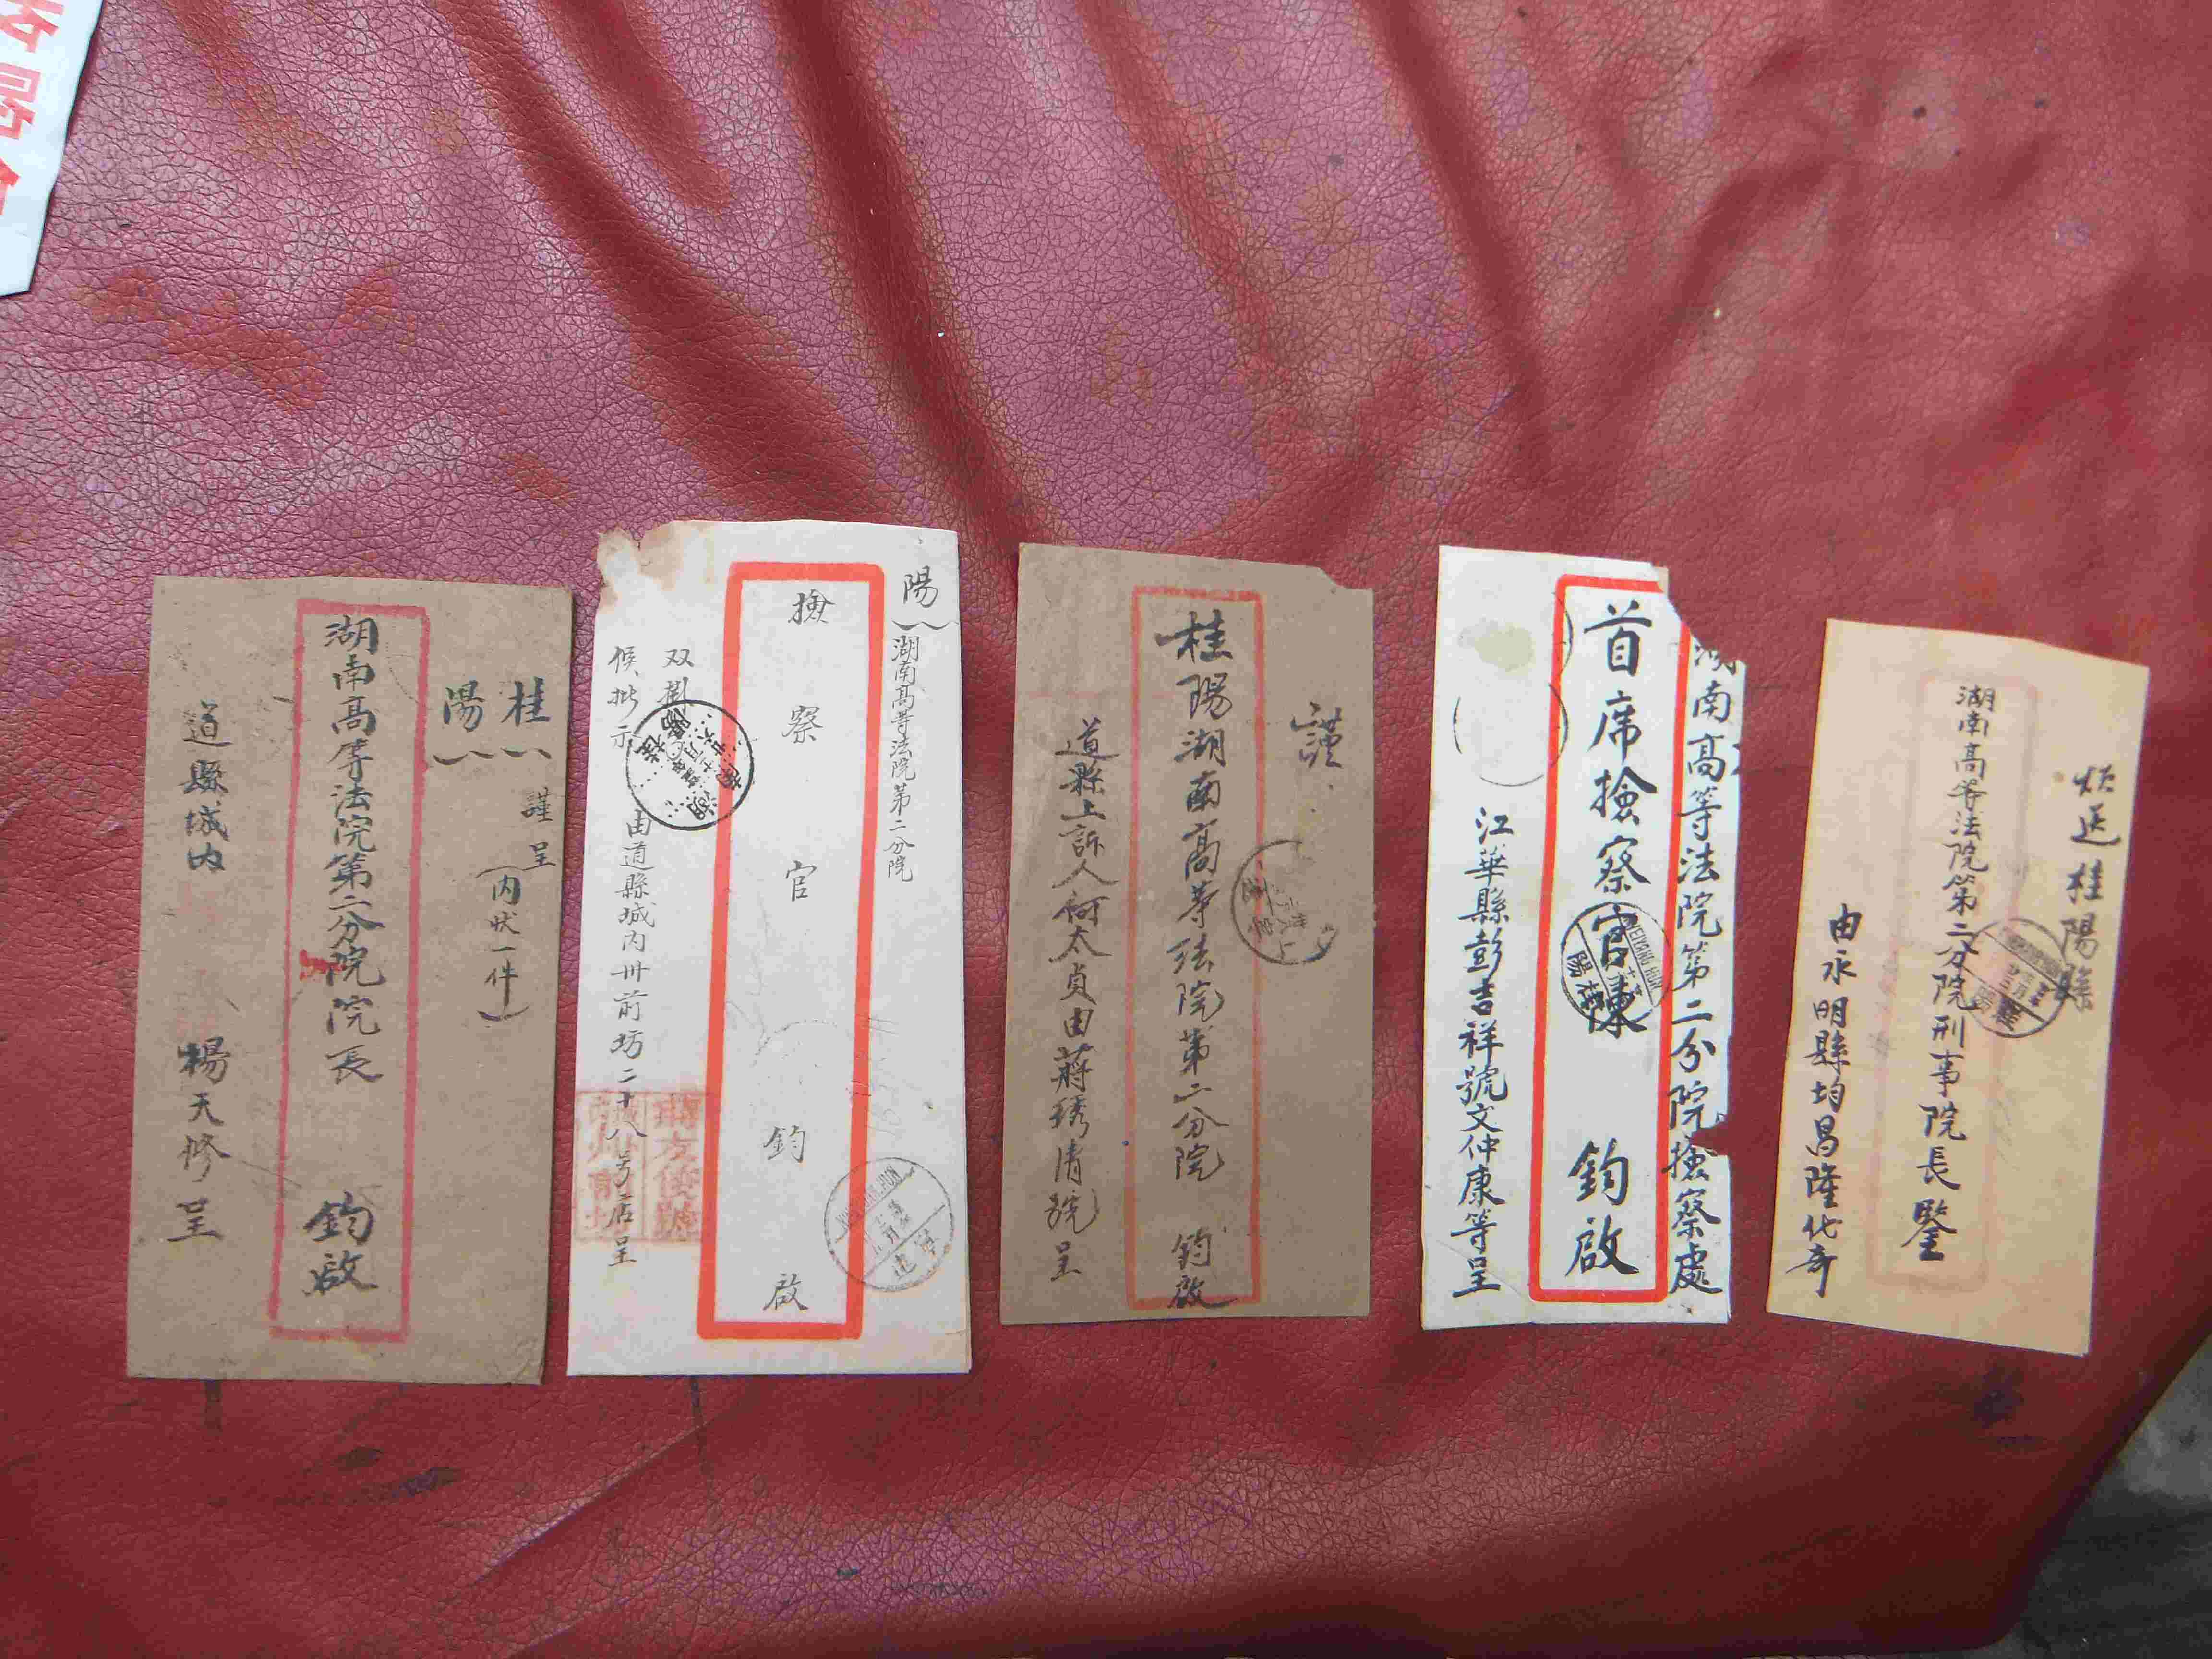 桂
陽
謹呈
(内狀一件)
湖南高等法院第二分院院長 鈞啟
道縣城内 楊天修呈
陽
湖南高等法院第二分院
檢察官 鈞啟
双掛
候批示
由道縣城内卅前坊二十八号店呈
謹
桂陽湖南高等法院第二分院 鈞啟
道縣上訴人何太貞由蔣琇清號呈
湖南高等法院第二分院檢察處
首席檢察官陳 鈞啟
江華縣彭吉祥號文仲康等呈
送桂陽縣
湖南高等法院第二分院刑事院長鑒
由永明縣均昌隆代寄